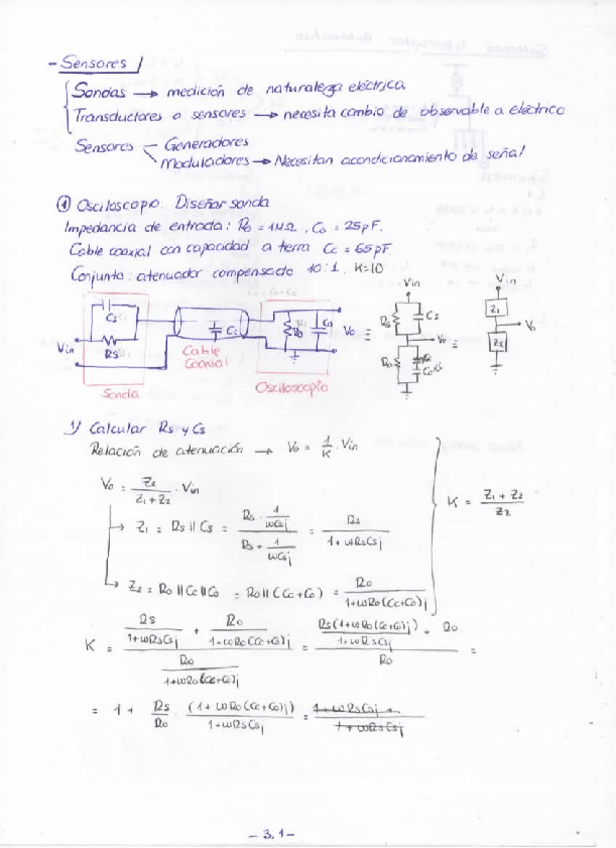 - Sensores
Sondas → medición de naturaleza eléctrica.
Transductores o sensores → necesita cambio de observable a eléctrico
Sensores
Generadores
Moduladores → Necesitan acondicionamiento de señal
① Osciloscopio. Diseñar sonda
Impedancia de entrada: Ro = 1MΩ, Co = 25pF.
Cable coaxial con capacidad a tierra Cc = 65pF.
Conjunto: atenuador compensado 10:1. K=10
Vin Cs Rs Cc Ro Co Vo ≡ Rs Cs Ro Vo ≡ Vin Z1 Z2 Vo
Cable Coaxial
Sonda
Osciloscopio
1) Calcular Rs y Cs
Relación de atenuación → Vo = 1/K · Vin
Vo = Z2/(Z1+Z2) · Vin
→ Z1 = Rs || Cs = (Rs · 1/(ωCsj))/(Rs + 1/(ωCsj)) = Rs/(1+ωRsCsj)
K = (Z1 + Z2)/Z2
→ Z2 = Ro || Cc || Co = Ro || (Cc+Co) = Ro/(1+ωRo(Cc+Co)j)
K = (Rs/(1+ωRsCsj) + Ro/(1+ωRo(Cc+Co)j))/(Ro/(1+ωRo(Cc+Co)j)) = (Rs(1+ωRo(Cc+Co)j)/(1+ωRsCsj) + Ro)/Ro =
= 1 + Rs/Ro · (1+ωRo(Cc+Co)j)/(1+ωRsCsj) =
- 3.1 -